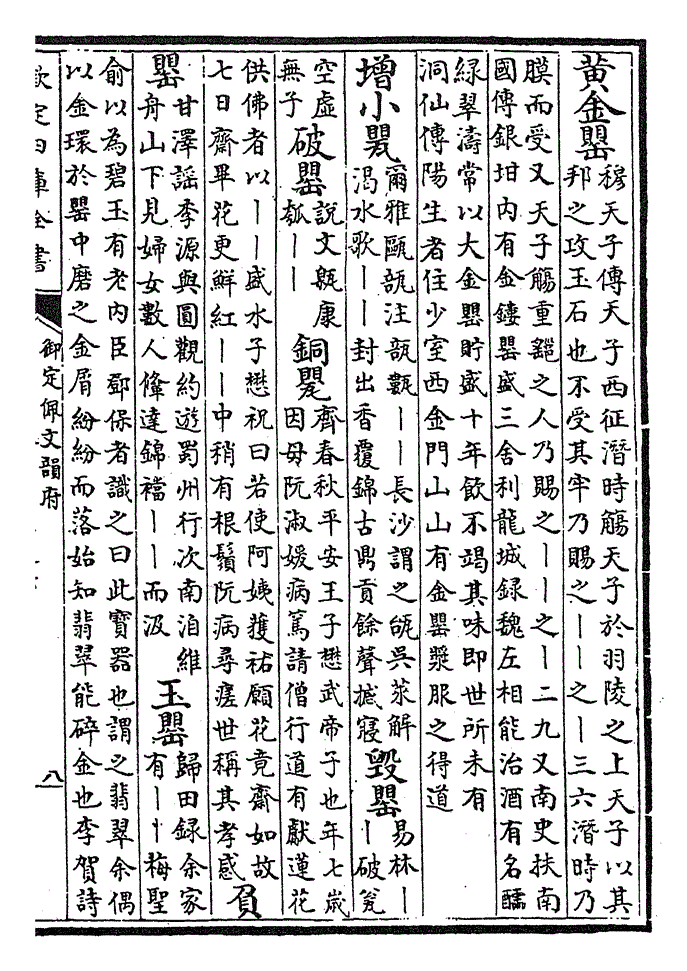 黄金罌
穆天子傳天子西征潛時觴天子於羽陵之上天子以其
邦之攻玉石也不受其牢乃賜之丨丨之丨三六潛時乃
膜而受又天子觴重䣙之人乃賜之丨丨之丨二九又南史扶南
國傳銀坩内有金鏤罌盛三舍利龍城録魏左相能治酒有名醽
緑翠濤常以大金罌貯盛十年飲不竭其味即世所未有
洞仙傳陽生者住少室西金門山山有金罌漿服之得道
增小甖
爾雅甌瓿注瓿甊丨丨長沙謂之瓵吳萊解
渴水歌丨丨封出香覆錦古鼎貢餘聲撼寢
毀罌
易林丨
丨破瓮
空虛
無子
破罌
說文甈康
瓠丨丨
銅甖
齊春秋平安王子懋武帝子也年七歲
因母阮淑媛病篤請僧行道有獻蓮花
供佛者以丨丨盛水子懋祝曰若使阿姨獲祐願花竟齋如故
七日齋畢花更鮮紅丨丨中稍有根鬚阮病尋瘥世稱其孝感
負
罌
甘澤謡李源與圓觀約遊蜀州行次南泊維
舟山下見婦女數人鞗達錦襠丨丨而汲
玉罌
歸田録余家
有丨丨梅聖
俞以為碧玉有老内臣鄧保者識之曰此寶器也謂之翡翠余偶
以金環於罌中磨之金屑紛紛而落始知翡翠能碎金也李賀詩
欽定四庫全書
御定佩文韻府
八